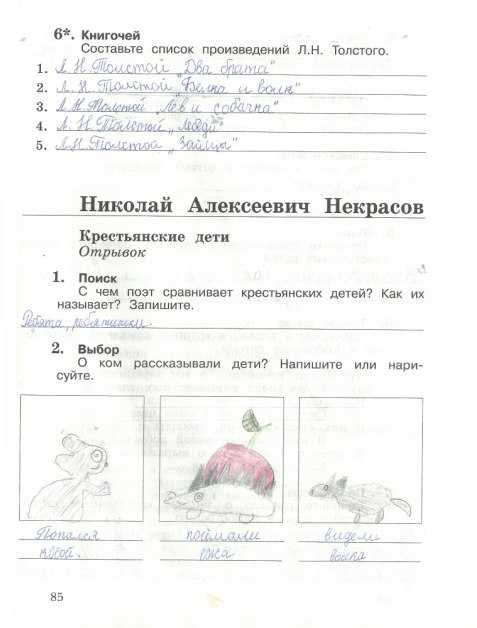 6*. Книгочей
Составьте список произведений Л.Н. Толстого.
1. Л Н Толстой „Два брата"
2. Л. Н Толстой „Белка и волк"
3. Л Н Толстой „Лев и собачка"
4. Л. Н. Толстой „Лебеди"
5. Л Н Толстой „Зайцы"
Николай Алексеевич Некрасов
Крестьянские дети
Отрывок
1. Поиск
С чем поэт сравнивает крестьянских детей? Как их
называет? Запишите.
Ребята, ребятишки.
2. Выбор
О ком рассказывали дети? Напишите или нари-
суйте.
Попался поймали видели
ежа волка
85